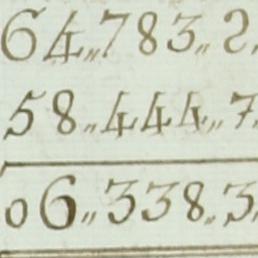 64,,783,, 2.
58,,444,, 7.
06,,338,, 3.